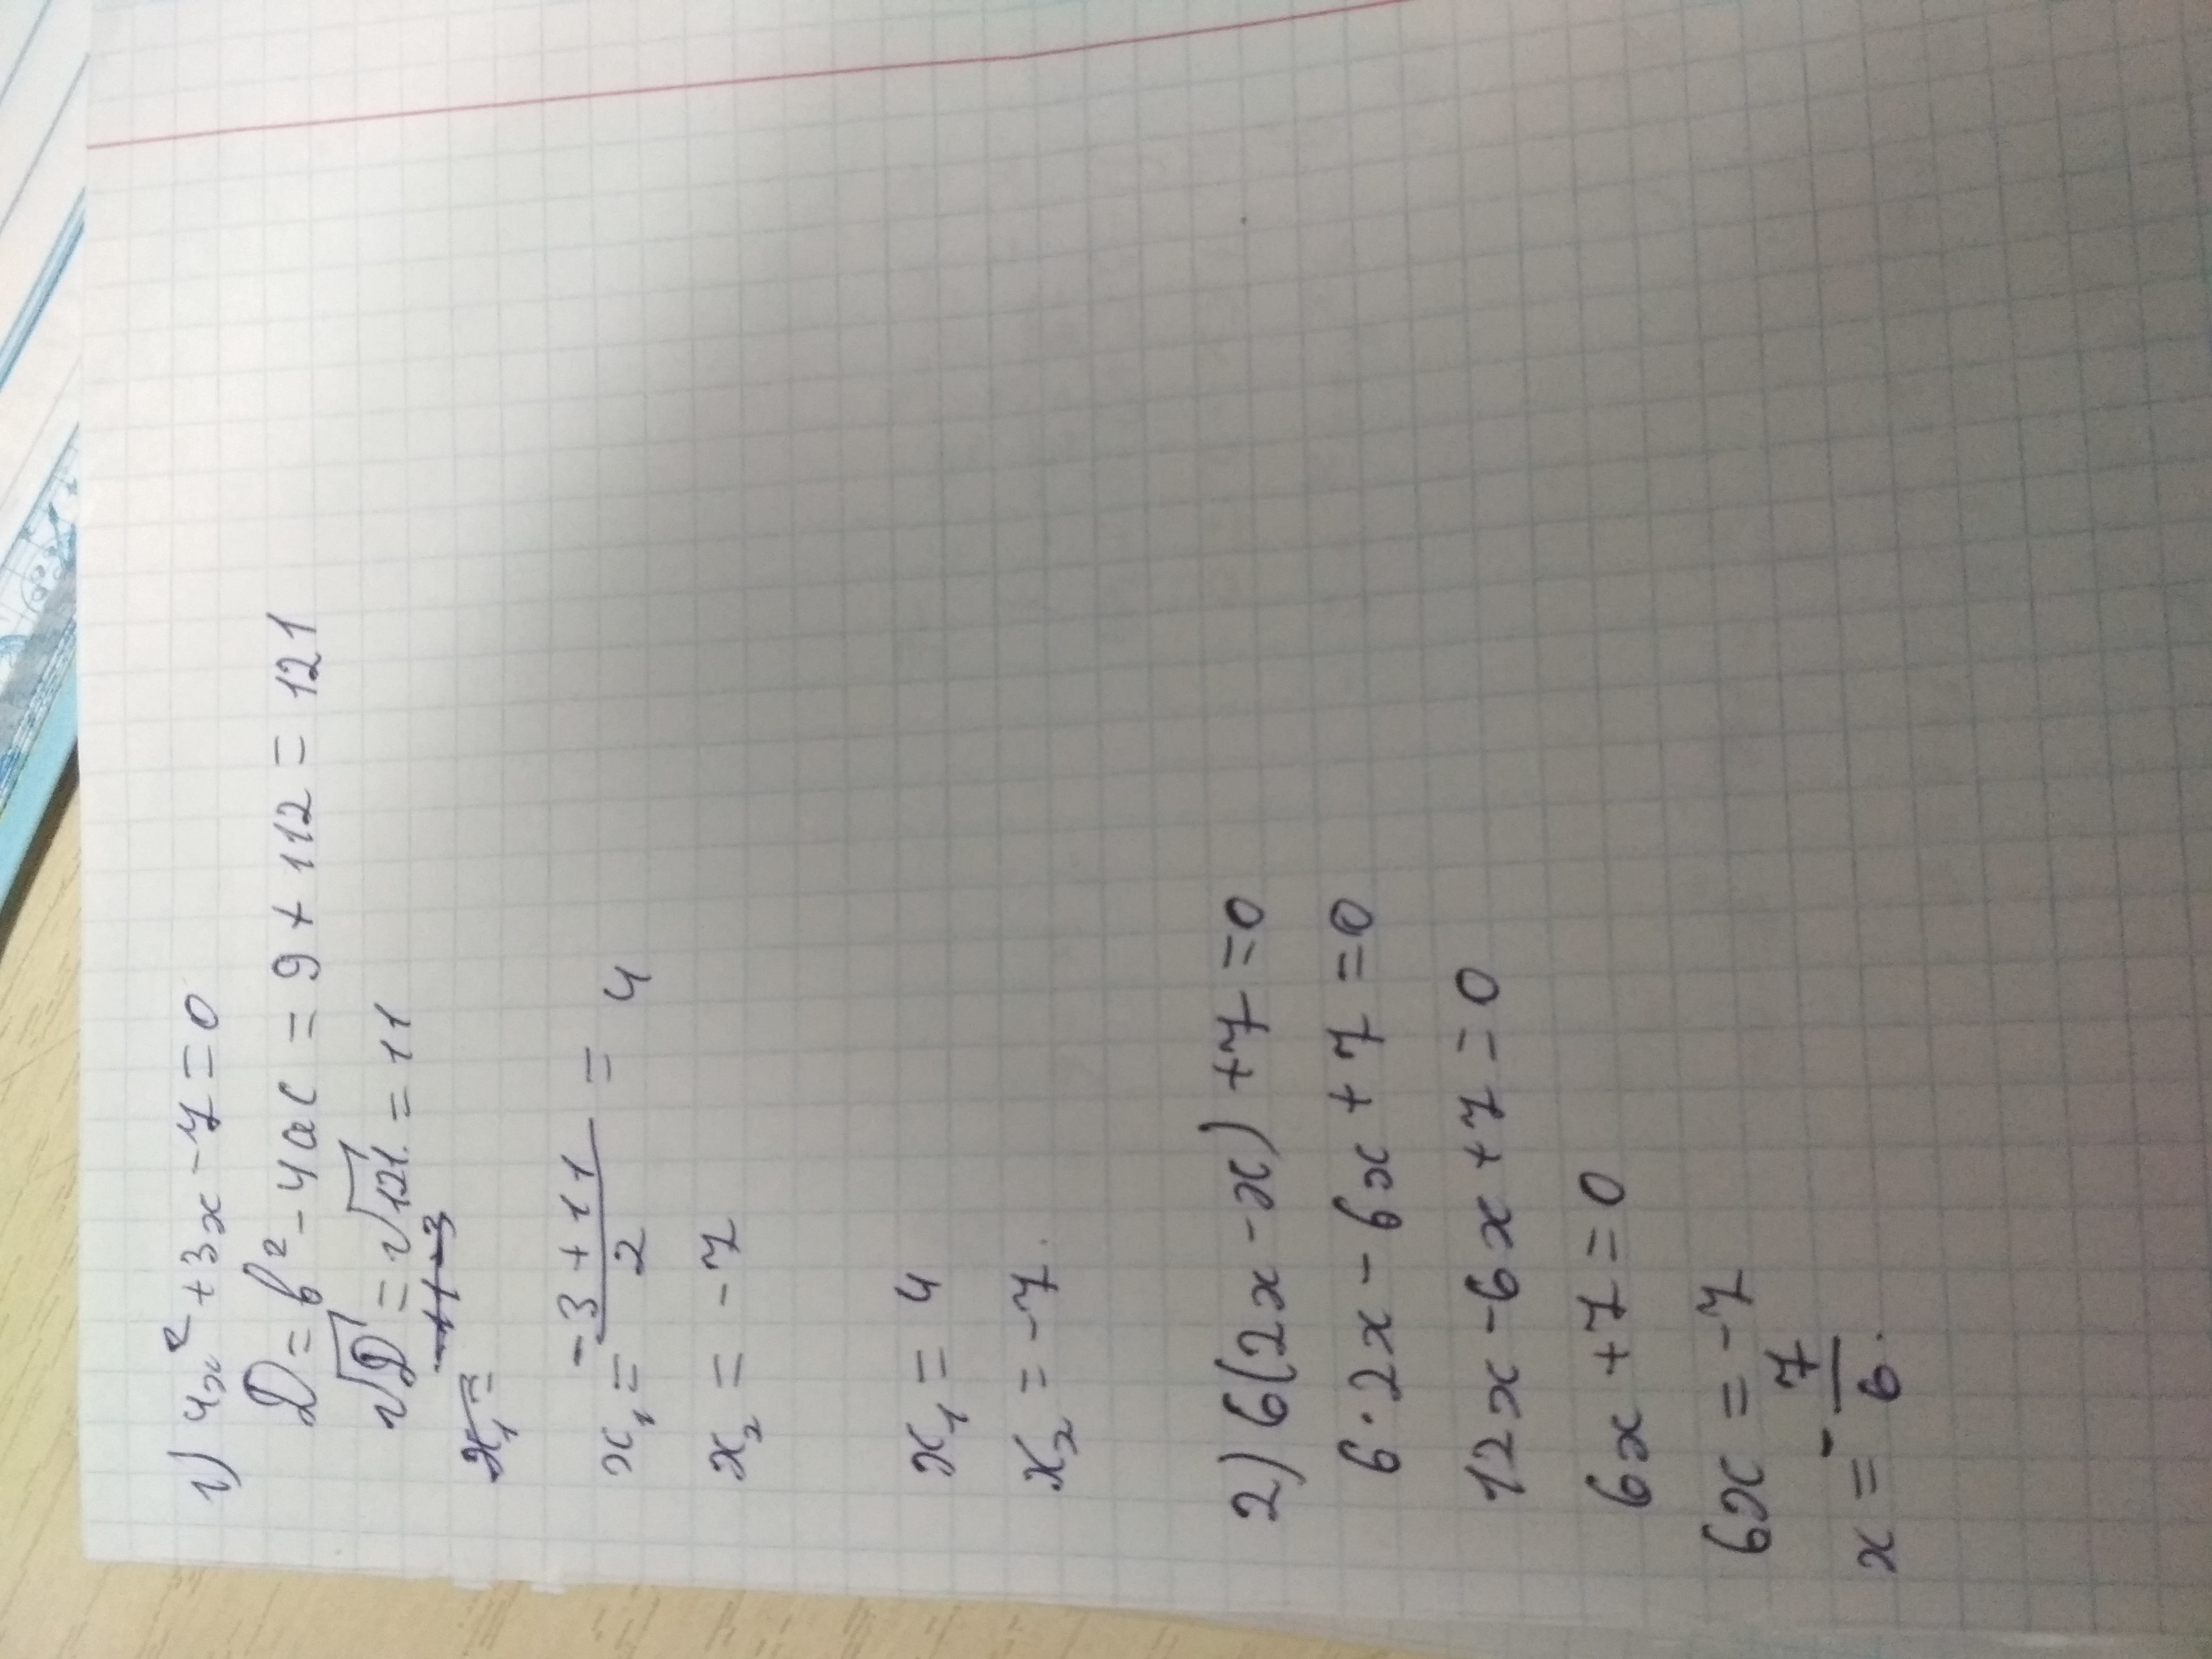 1) 4x² + 3x - 7 = 0
D = b² - 4ac = 9 + 112 = 121
√D = √121 = 11
x₁ = 11-3
x₁ = -3 + 11 / 2 = 4
x₂ = -7
x₁ = 4
x₂ = -7.
2) 6(2x - x) + 7 = 0
6 · 2x - 6x + 7 = 0
12x - 6x + 7 = 0
6x + 7 = 0
6x = -7
x = - 7/6.